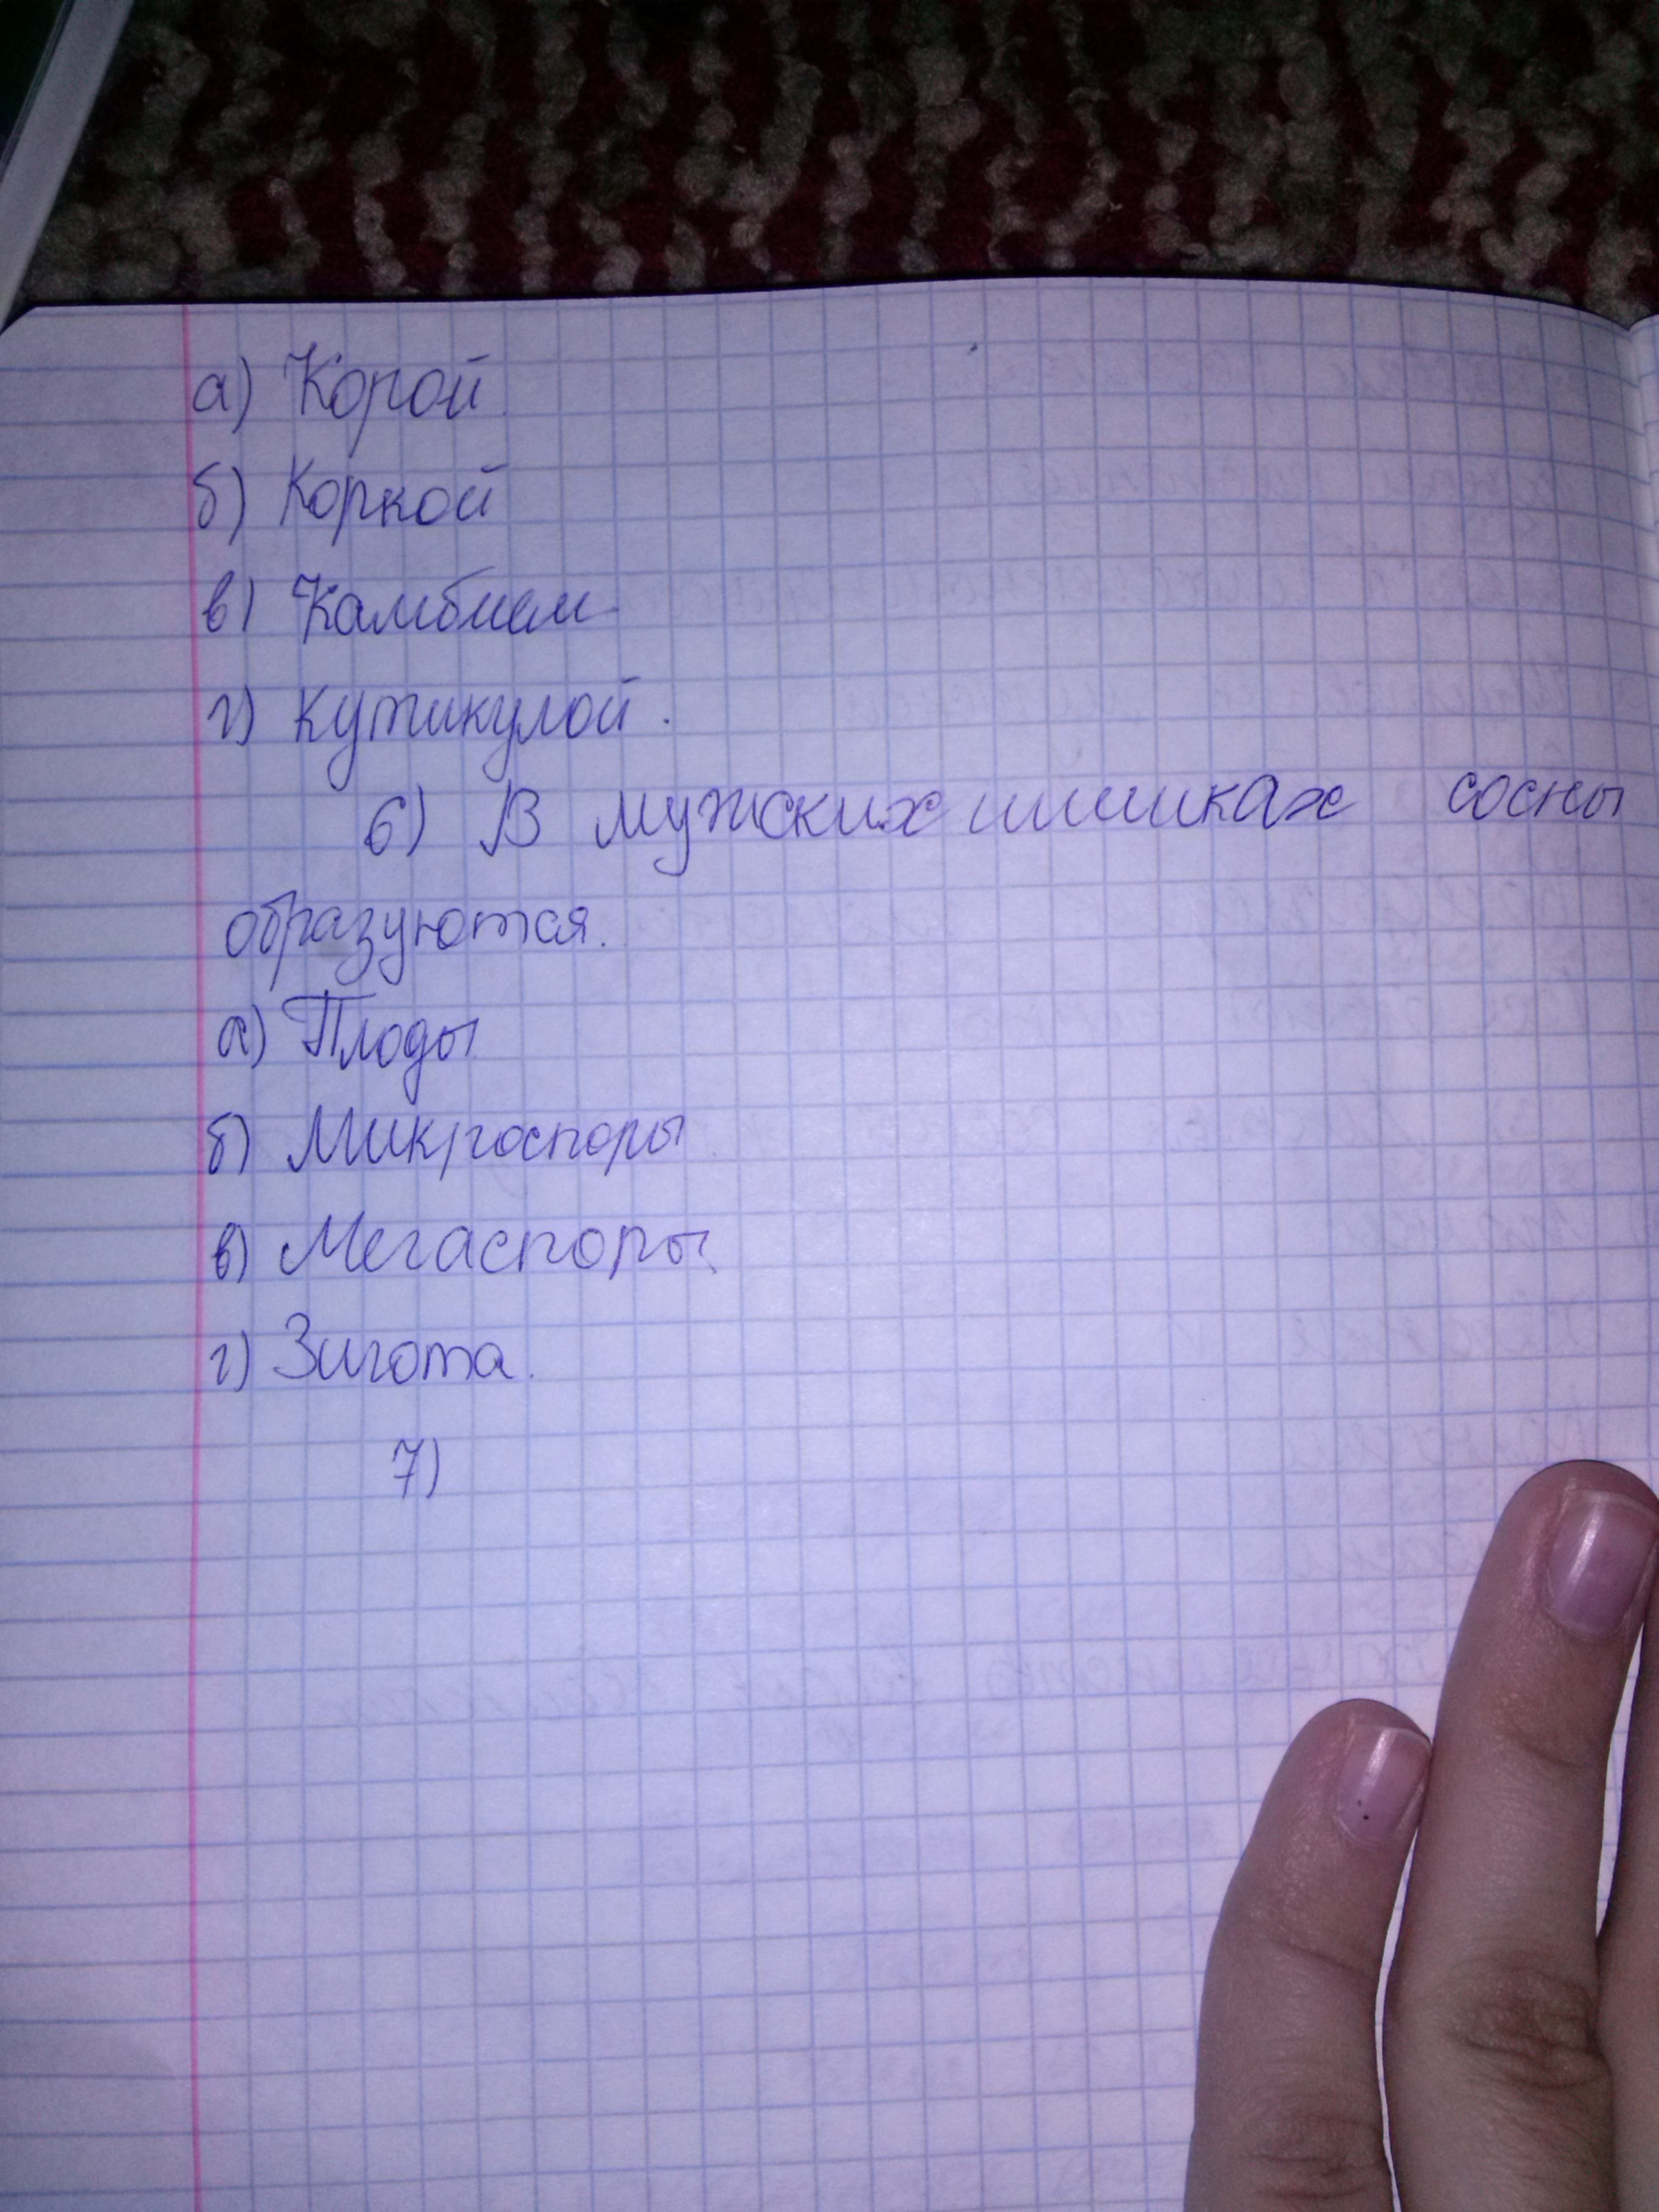 а) Корой
б) Коркой
в) Камбием
г) Кутикулой.
6) В мужских шишках сосны
образуются.
а) Плоды
б) Микроспоры
в) Мегаспоры
г) Зигота.
7)